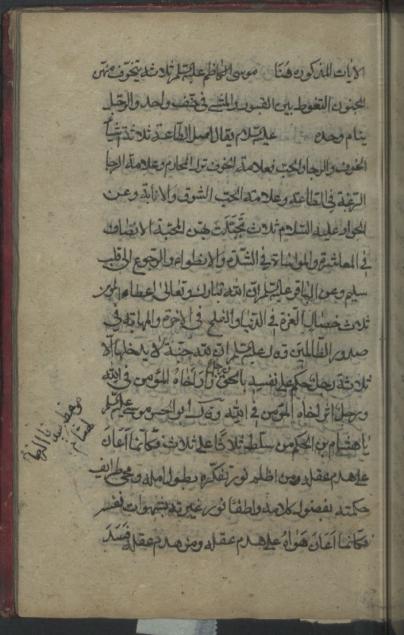 الايات المذكوره هنا موسى الكاظم عليه السلم ثلاثة يتخوف منهن
الجنون التغوط بين القبور والمشي في خف واحد والرجل
ينام وحده عليه السلام يقال اهل الطاعة ثلاثة اشياء
الخوف والرجا والحب فعلامة الخوف ترك المحارم وعلامة الرجا
الرغبة في الطاعة وعلامة الحب الشوق والانابة وعن
الجواد عليه السلام ثلاث تجتلب بهن المحبة الانصاف
في المعاشرة والمواساة في الشدة والانطواء والرجوع الى قلب
سليم وعن الباقر عليه السلم ان الله تبارك وتعالى اعطى المؤمن
ثلاث خصال العزة في الدنيا والفلح في الاخرة والمهابة في
صدور الظالمين قال عليه السلم ان لله جنة لا يدخلها الا
ثلاثة رجل حكم على نفسه بالحق ورجل زار اخاه المؤمن في الله
ورجل اثر اخاه المؤمن في الله وقال ابو الحسن موسى عليه السلم
يا هشام بن الحكم من سلط ثلاثا على ثلاث فكانما اعان
على هدم عقله من اظلم نور تفكره بطول امله ومحى طرائف
حكمته بفضول كلامه واطفأ نور عبرته بشهوات نفسه
فكانما اعان هواه على هدم عقله ومن هدم عقله فسد